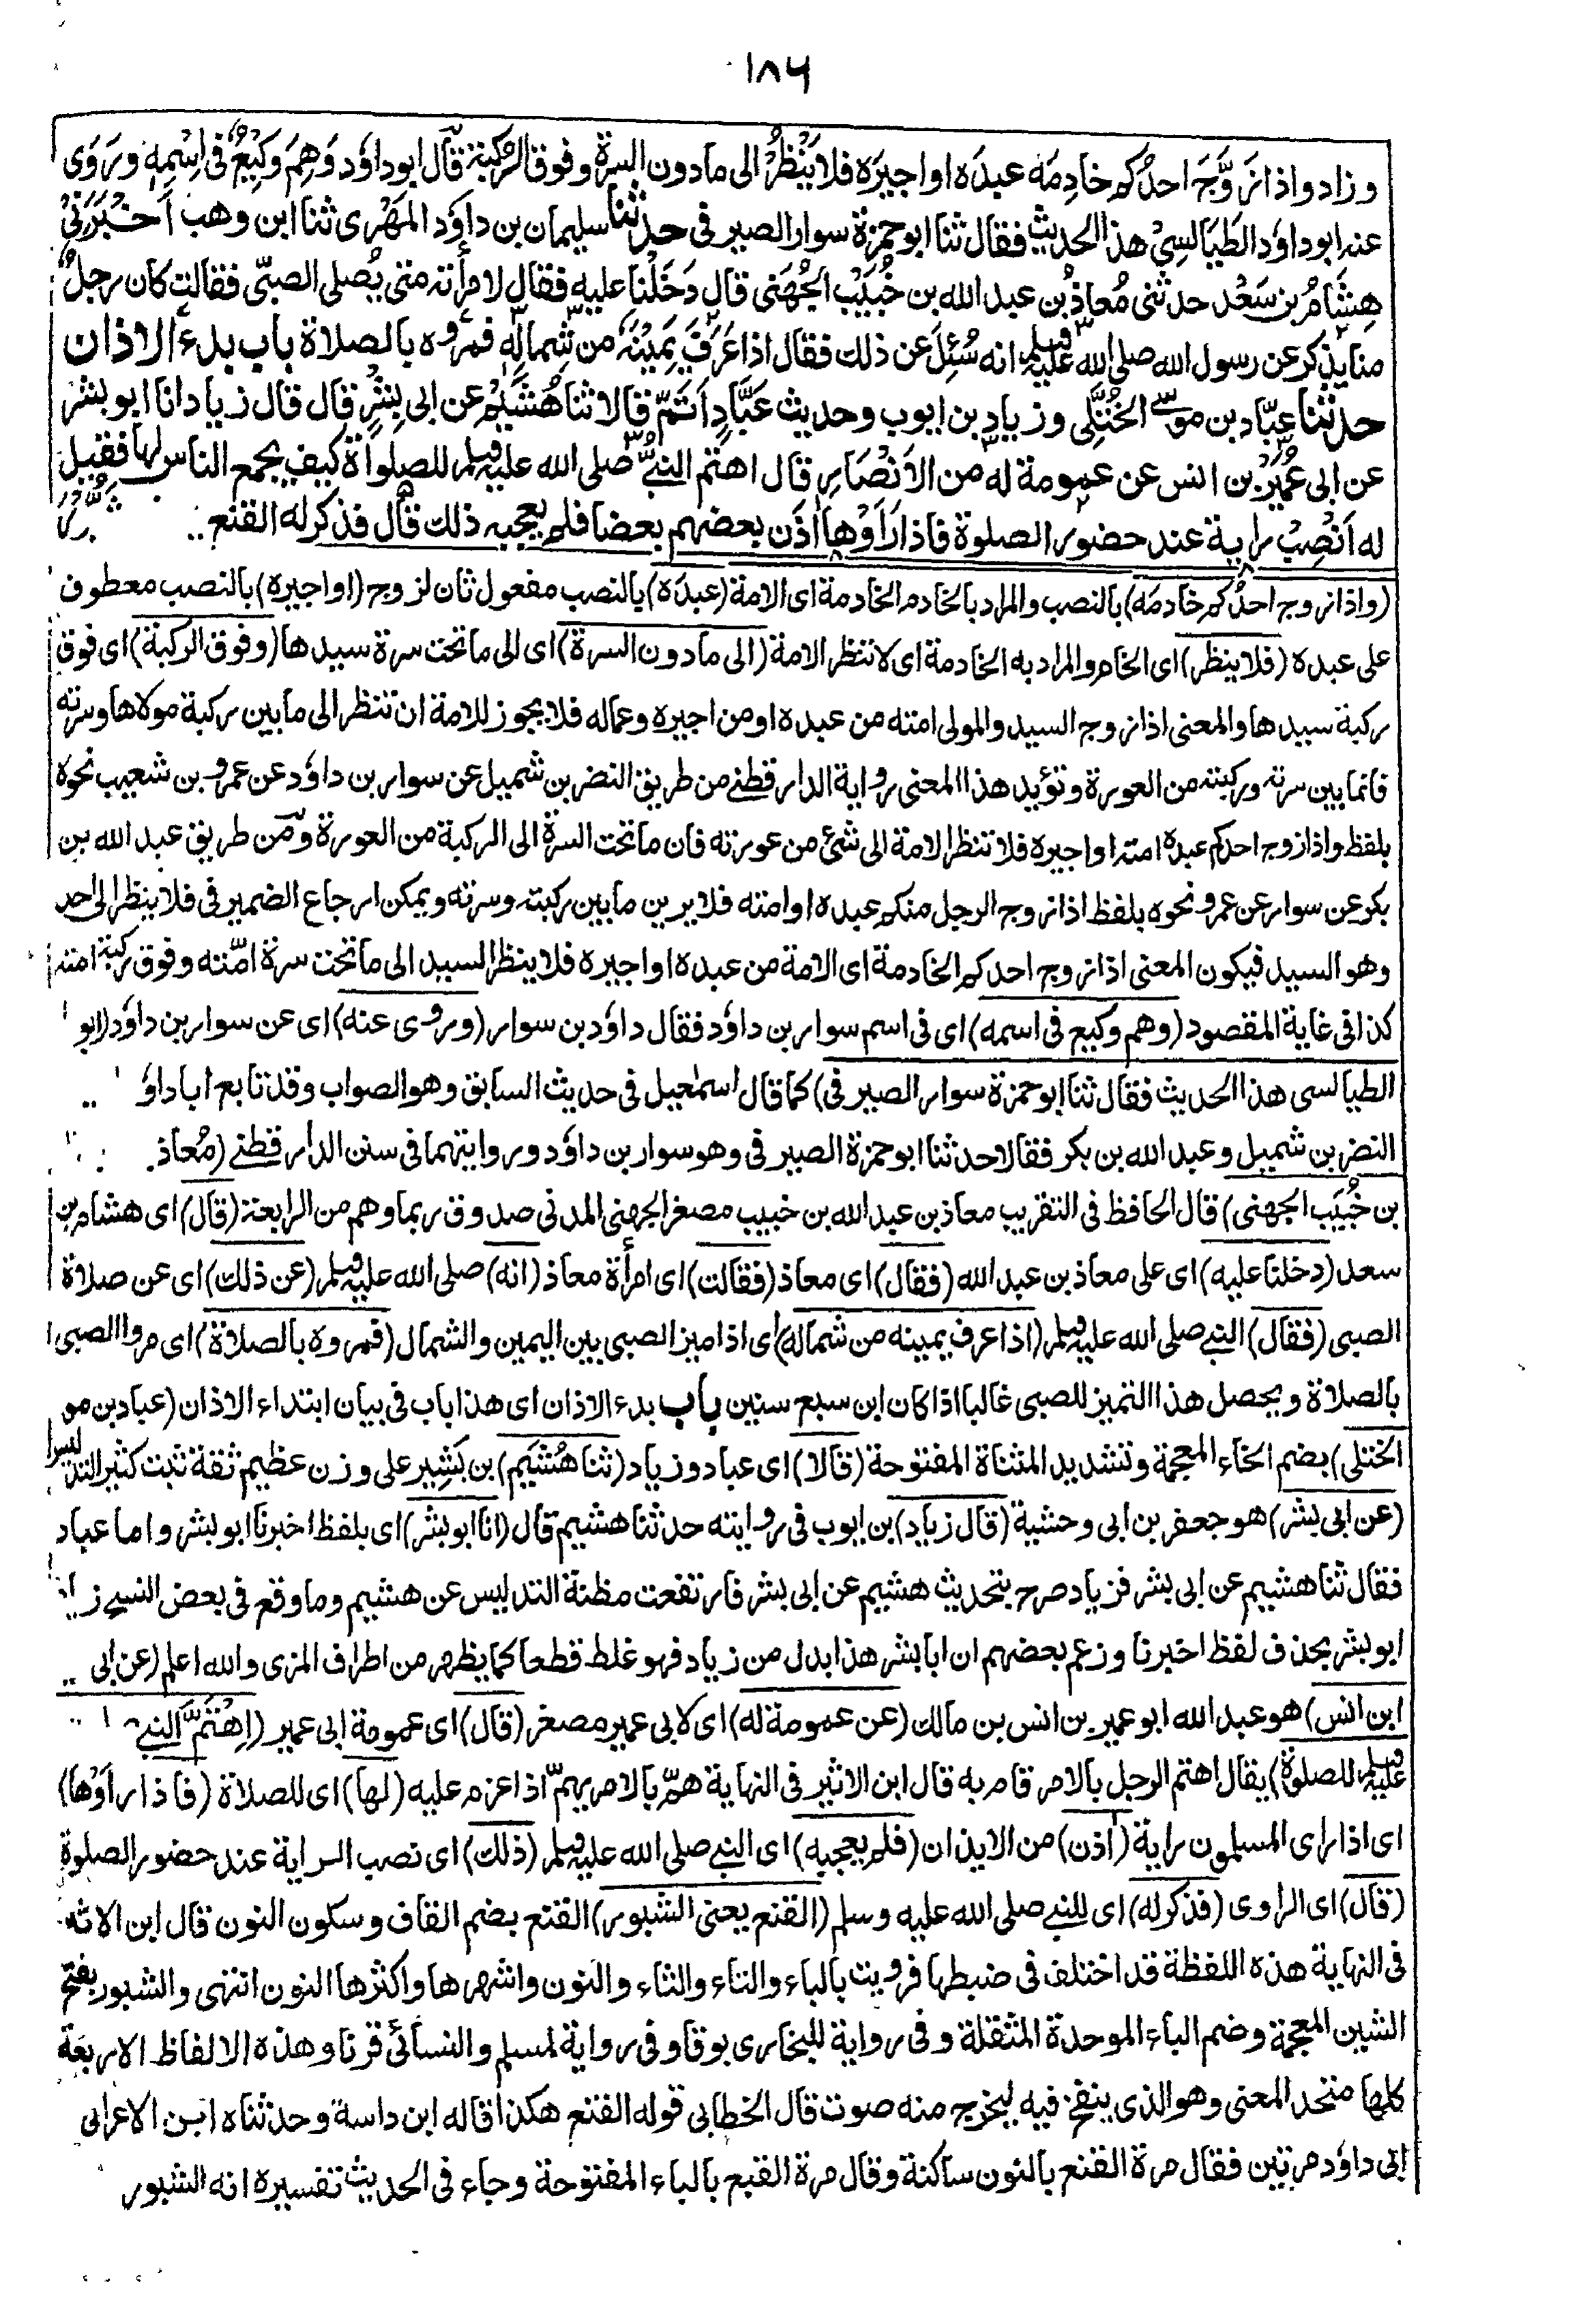 ١٨٦
وزاد واذا زَوَّجَ احدُكم خادِمَه عبدَه او اجيرَه فلا يَنْظُرْ الى مادون السرة وفوق الركبة قال ابوداؤد وَهِمَ وَكِيْعٌ فى اِسْمِهٖ ورَوَى
عنه ابوداؤد الطَيَالسِيْ هذا الحديث فقال ثنا ابوحمزة سوار الصيرفى حدثنا سليمان بن داؤد المَهْرى ثنا ابن وهب اَخْبَرَنِيْ
هِشَامُ بن سَعْد حدثنى مُعاذُ بن عبد الله بن خُبَيْب الجُهَنى قال دَخَلْنا عليه فقال لامرأته متى يُصلى الصبىّ فقالت كان رجلٌ
منا يذكر عن رسول الله صلى الله عليه وسلم انه سُئِلَ عن ذلك فقال اذا عَرَفَ يَمِيْنَهٗ من شِمالِهٖ فمروه بالصلاة باب بدء الاذان
حدثنا عبّاد بن موسى الخُتَّلِى وزياد بن ايوب وحديث عَبَّادٍ اَتَمّ قالا ثنا هُشَيْم عن ابى بِشْرٍ قال قال زياد انا ابو بشر
عن ابى عُمَيْر بن انس عن عمومة له من الاَنْصَار قال اهتم النبىُّ صلى الله عليه وسلم للصلواة كيف يجمع الناس لها فقيل
له اَنْصِبْ راية عند حضور الصلوة فاذا رَأَوْها اٰذَن بعضهم بعضا فلم يعجبه ذلك قال فذكر له القنع
(واذا زوج احدُكم خادمَه) بالنصب والمراد بالخادم الخادمة اى الامة (عبدَه) بالنصب مفعول ثان لزوج (او اجيره) بالنصب معطوف
على عبده (فلا ينظر) اى الخادم والمراد به الخادمة اى لا تنظر الامة (الى مادون السرة) اى الى ما تحت سرة سيدها (وفوق الركبة) اى فوق
ركبة سيدها والمعنى اذا زوج السيد والمولى امته من عبده او من اجيره وعماله فلا يجوز للامة ان تنظر الى ما بين ركبة مولاها وسرته
فانما بين سرته وركبته من العورة وتؤيد هذا المعنى رواية الدارقطنے من طريق النضر بن شميل عن سوار بن داؤد عن عمرو بن شعيب نحوه
بلفظ واذا زوج احدكم عبدة امته او اجيره فلا تنظر الامة الى شئ من عورته فان ما تحت السرة الى الركبة من العورة ومن طريق عبد الله بن
بكر عن سوار عن عمرو نحوه بلفظ اذا زوج الرجل منكم عبده او امته فلا يرين ما بين ركبته وسرته ويمكن ارجاع الضمير فى فلا ينظر الى احد
وهو السيد فيكون المعنى اذا زوج احدكم الخادمة اى الامة من عبده او اجيره فلا ينظر السيد الى ما تحت سرة امته وفوق ركبة امته
كذا فى غاية المقصود (وهم وكيع فى اسمه) اى فى اسم سوار بن داؤد فقال داؤد بن سوار (وروى عنه) اى عن سوار بن داؤد (ابو
الطيالسى هذا الحديث فقال ثنا ابوحمزة سوار الصيرفى) كما قال اسمٰعيل فى حديث السابق وهو الصواب وقد تابع اباداؤ
النضر بن شميل وعبد الله بن بكر فقالا حدثنا ابوحمزة الصيرفى وهو سوار بن داؤد وروايتهما فى سنن الدارقطنے (مُعاذ
بن خُبَيْب الجهنى) قال الحافظ فى التقريب معاذ بن عبد الله بن خبيب مصغر الجهنى المدنى صدوق ربما وهم من الرابعة (قال) اى هشام بن
سعد (دخلنا عليه) اى على معاذ بن عبد الله (فقال) اى معاذ (فقالت) اى امرأة معاذ (انه) صلى الله عليه وسلم (عن ذلك) اى عن صلاة
الصبى (فقال) النبے صلى الله عليه وسلم (اذا عرف يمينه من شماله) اى اذا ميز الصبى بين اليمين والشمال (فمروه بالصلاة) اى مروا الصبى
بالصلاة ويحصل هذا التميز للصبى غالبا اذا كان ابن سبع سنين باب بدء الاذان اى هذا باب فى بيان ابتداء الاذان (عباد بن مو
الختلى) بضم الخاء المعجمة وتشديد المثناة المفتوحة (قالا) اى عباد وزياد (ثنا هُشَيْم) بن بَشِير على وزن عظيم ثقة ثبت كثير التدليس
(عن ابى بشر) هو جعفر بن ابى وحشية (قال زياد) بن ايوب فى روايته حدثنا هشيم قال (انا ابوبشر) اى بلفظ اخبرنا ابوبشر واما عباد
فقال ثنا هشيم عن ابى بشر فزياد صرح بتحديث هشيم عن ابى بشر فارتفعت مظنة التدليس عن هشيم وما وقع فى بعض النسخ
ابوبشر بحذف لفظ اخبرنا وزعم بعضهم ان ابابشر هذا بدل من زياد فهو غلط قطعا كما يظهر من اطراف المزى والله اعلم (عن ابى
ابن انس) هو عبد الله ابوعمير بن انس بن مالك (عن عمومة له) اى لابى عمير مصغر (قال) اى عمومة ابى عمير (اِهْتَمَّ النبے
عليه وسلم للصلوة) يقال اهتم الرجل بالامر قام به قال ابن الاثير فى النهاية همّ بالامر يهمّ اذا عزم عليه (لها) اى للصلاة (فاذا رأَوْها)
اى اذا راى المسلمون راية (اٰذن) من الايذان (فلم يعجبه) اى النبے صلى الله عليه وسلم (ذلك) اى نصب الراية عند حضور الصلوة
(قال) اى الراوى (فذكر له) اى للنبے صلى الله عليه وسلم (القنع يعنى الشبور) القنع بضم القاف وسكون النون قال ابن الاث
فى النهاية هذه اللفظة قد اختلف فى ضبطها فرويت بالباء والتاء والثاء والنون واشهرها واكثرها النون انتهى والشبور بفتح
الشين المعجمة وضم الباء الموحدة المثقلة وفى رواية للبخارى بوقا وفى رواية لمسلم والنسائى قرنا وهذه الالفاظ الاربعة
كلها متحد المعنى وهو الذى ينفخ فيه ليخرج منه صوت قال الخطابى قوله القنع هكذا قاله ابن داسة وحدثناه ابن الاعرابى
ابى داؤد مرتين فقال مرة القنع بالنون ساكنة وقال مرة القبع بالباء المفتوحة وجاء فى الحديث تفسيره انه الشبور